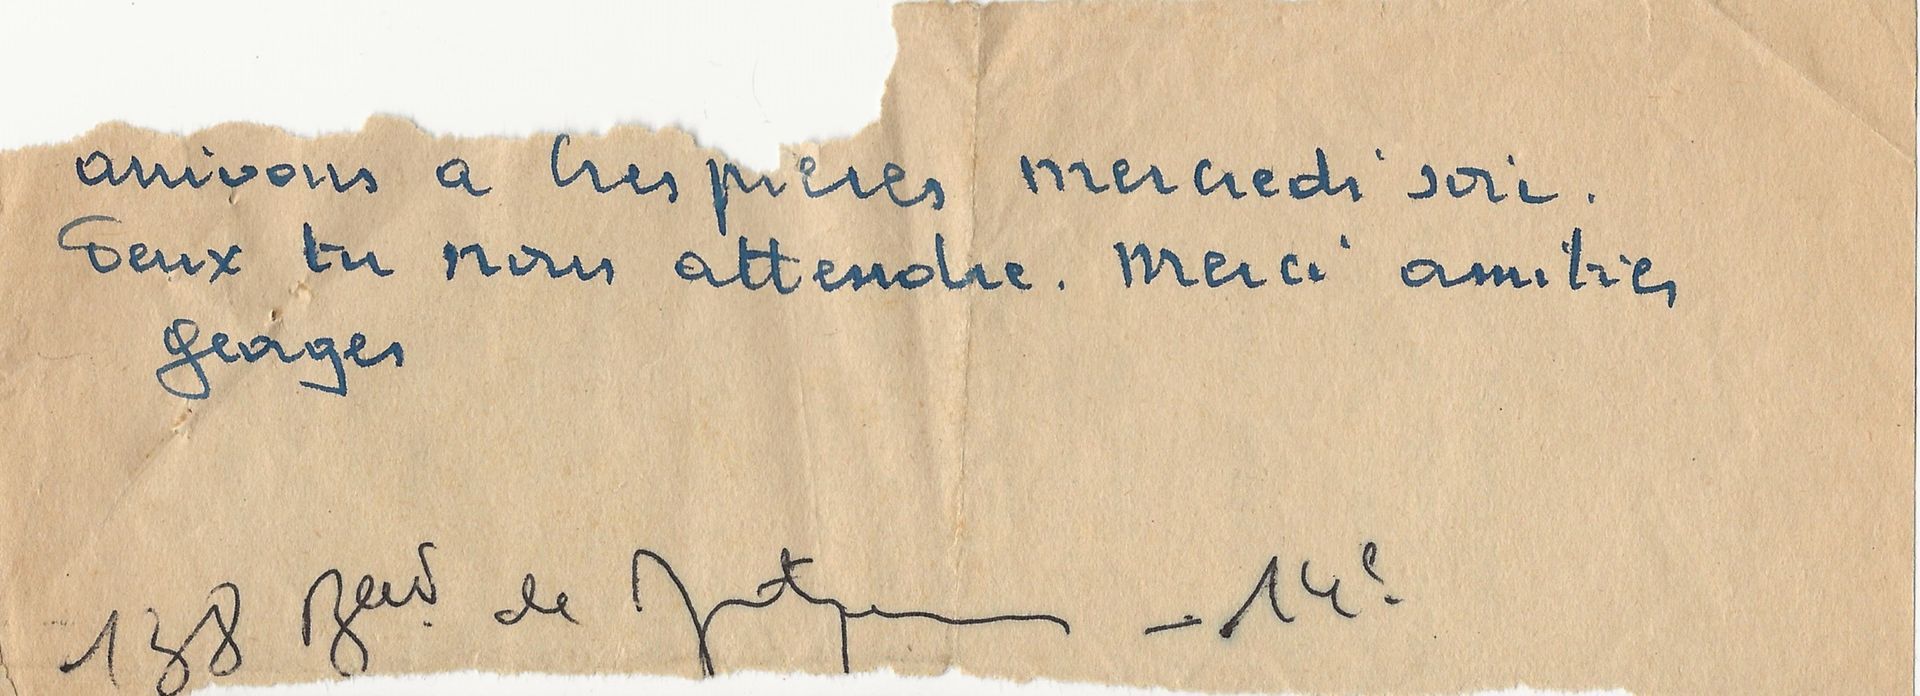 arrivons a Crespières mercredi soir.
Peux tu nous attendre. Merci amitiés
Georges
138 Bard de Montparnasse - 14e